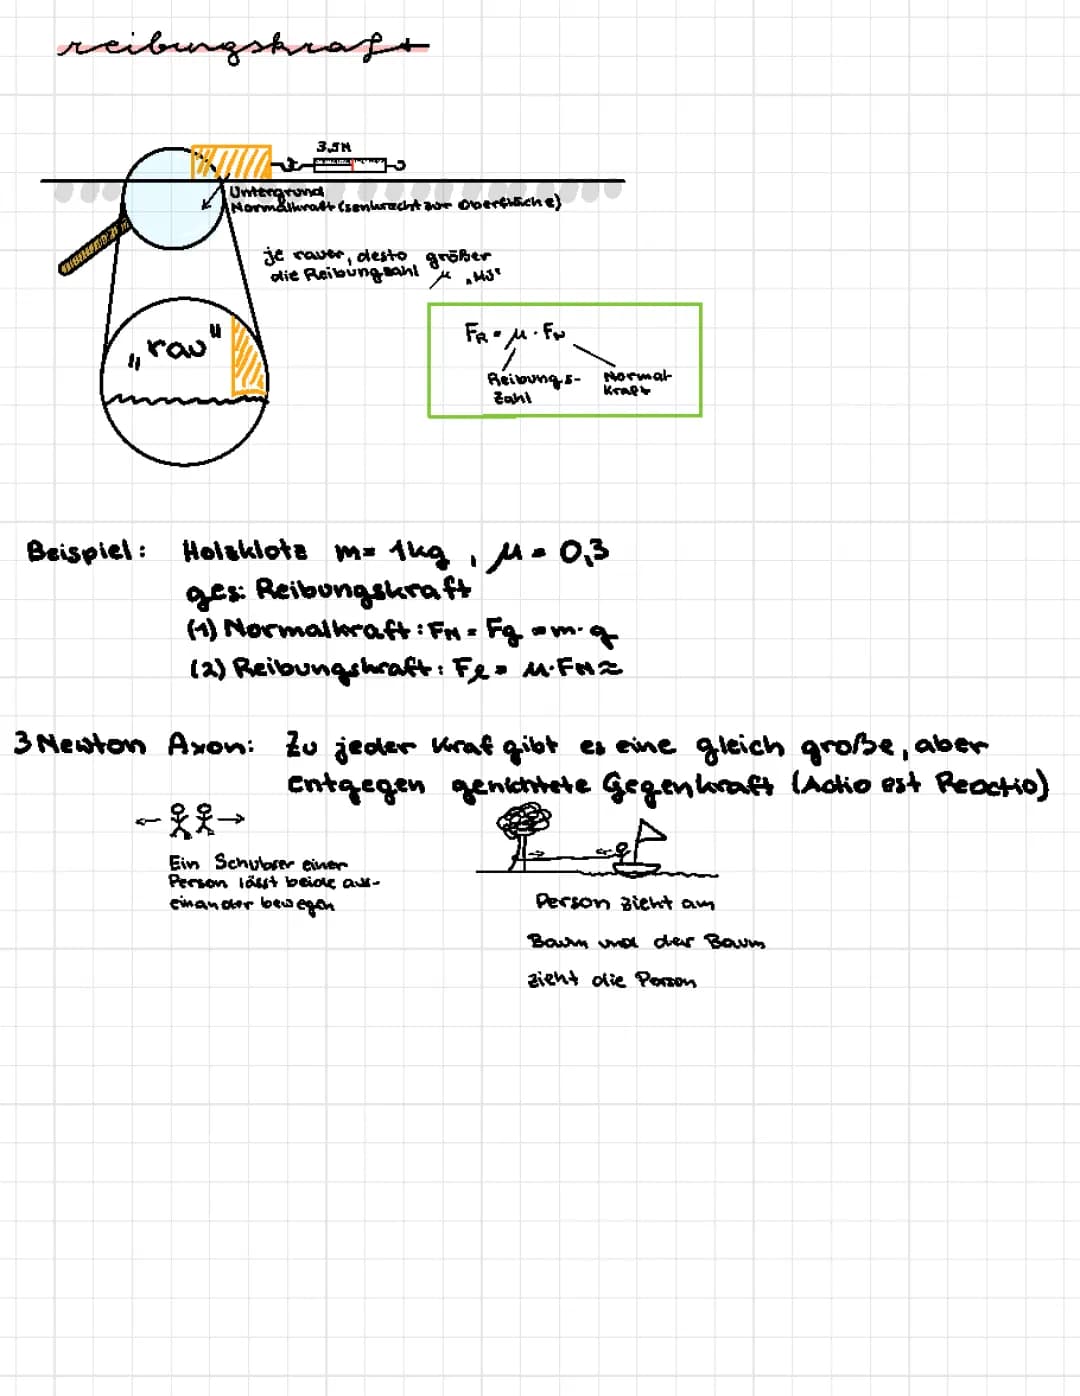 reibungskraft
3,5N
Untergrund
Normalkraft (senkrecht zur Oberfläche)
je rauer, desto größer
die Reibungszahl μ „MÜ"
„rau"
FR = μ · FN
Reibungs-
Zahl
Normal-
Kraft
Beispiel: Holzklotz m= 1kg , μ = 0,3
ges: Reibungskraft
(1) Normalkraft: FN = Fg = m·g
(2) Reibungskraft: FR = μ·FN ≈
3 Newton Axon: Zu jeder Kraf gibt es eine gleich große, aber
entgegen gerichtete Gegenkraft (Actio est Reactio)
Ein Schubser einer
Person lässt beide aus-
einander bewegen
Person zieht am
Baum und der Baum
zieht die Person